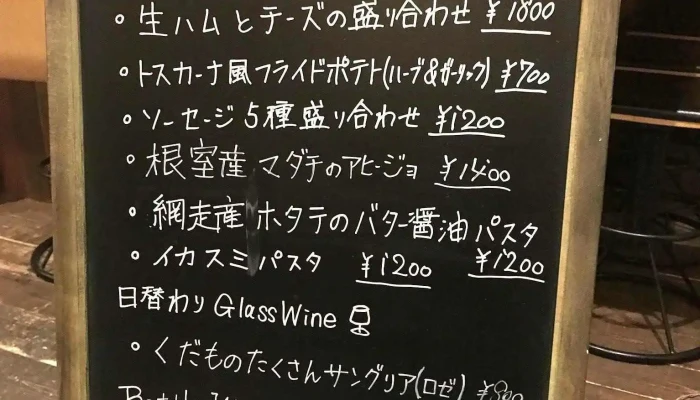 ・生ハムとチーズの盛り合わせ ¥1800
・トスカーナ風フライドポテト(ハーブ&ガーリック) ¥700
・ソーセージ5種盛り合わせ ¥1200
・根室産マダチのアヒージョ ¥1400
・網走産ホタテのバター醤油パスタ ¥1200
・イカスミパスタ ¥1200
日替わり Glass Wine
・くだものたくさんサングリア(ロゼ)